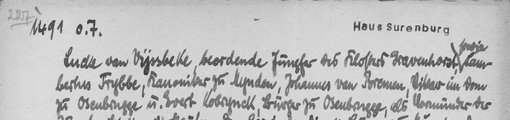 227
1491 o.J.
Haus Surenburg
Lucke van Vyssbeke, beordende Jungfer des Klosters Gravenhorst, sowie Lam-
bertus Trybbe, Kanoniker zu Mynden, Johannes van Bremen, Vikar im Dom
zu Osenbrugge u. Evert Kobrynck Bürger zu Osenbrugge, als Vormünder der